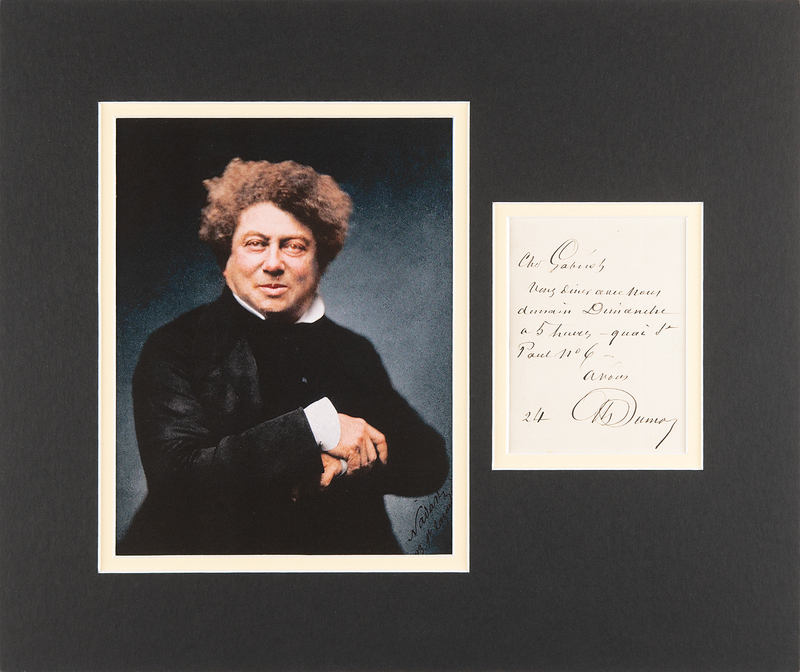 Cher Gabriel
Venez diner avec Nous
demain Dimanche
a 5 heures – quai St
Paul No 6 –
a vous
24 ADumas
Nadar